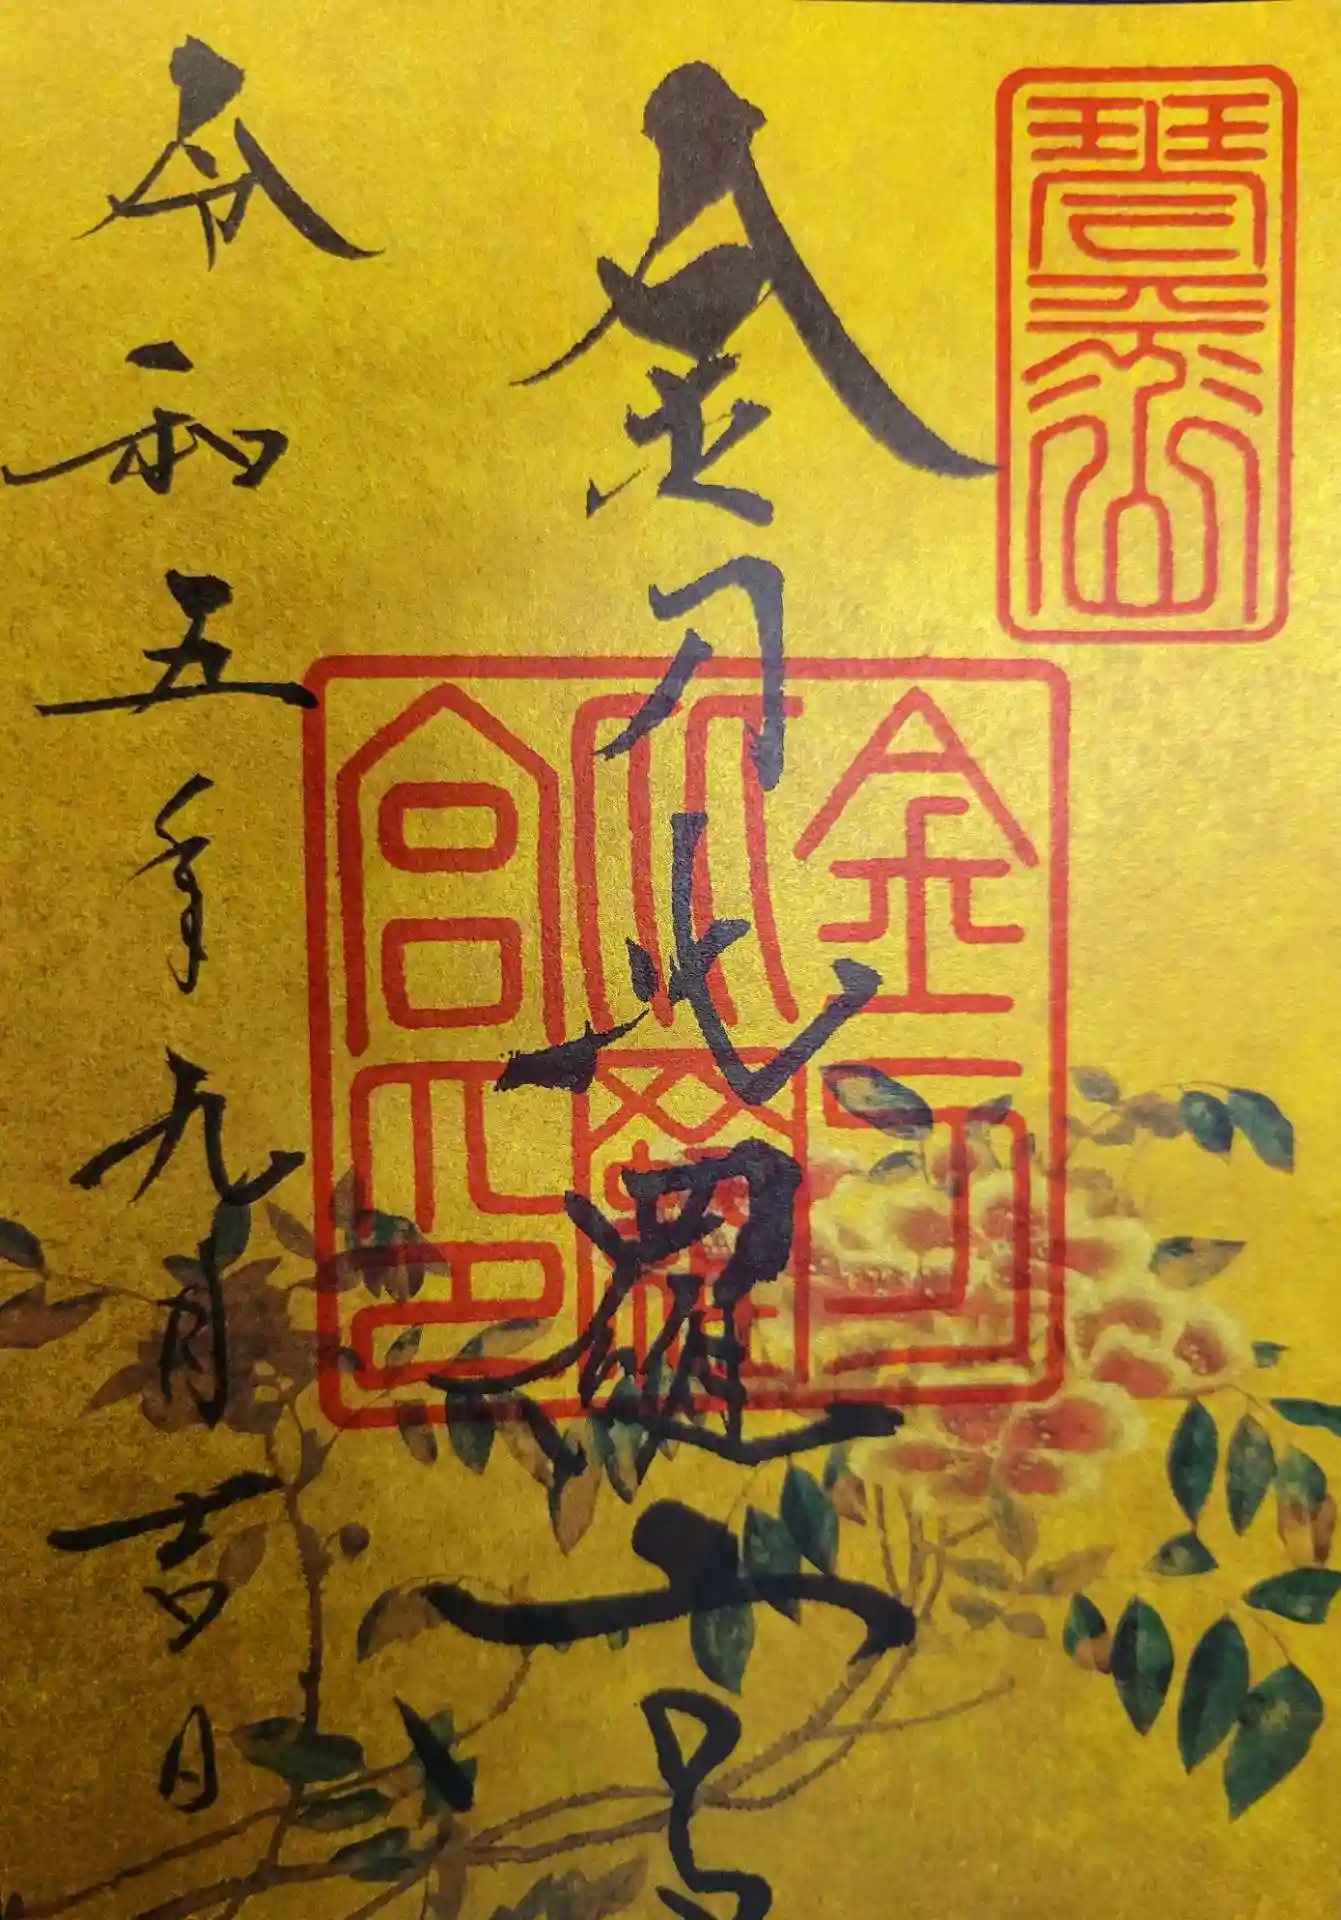 琴平山
金刀比羅宮
金刀比羅宮印
令和五年九月吉日